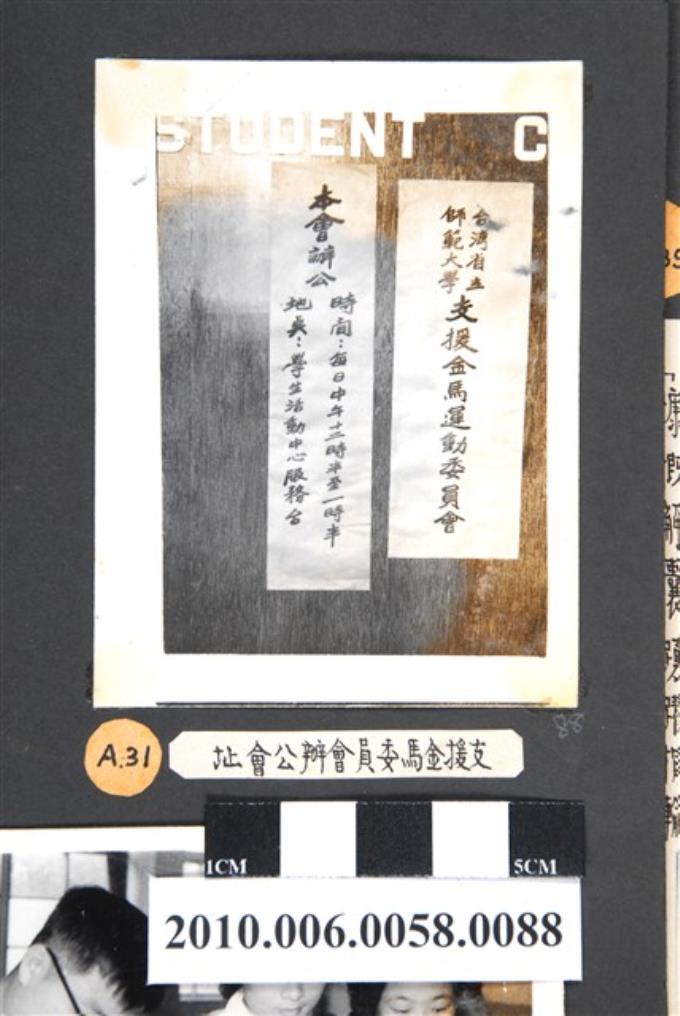 STUDENT C
台湾省立
師範大學
支援金馬運動委員會
本會辦公
時間：每日中午十二時半至一時半
地奌：學生活動中心服務台
88
A.31
支援金馬委員會辦公會址
1CM 5CM
2010.006.0058.0088